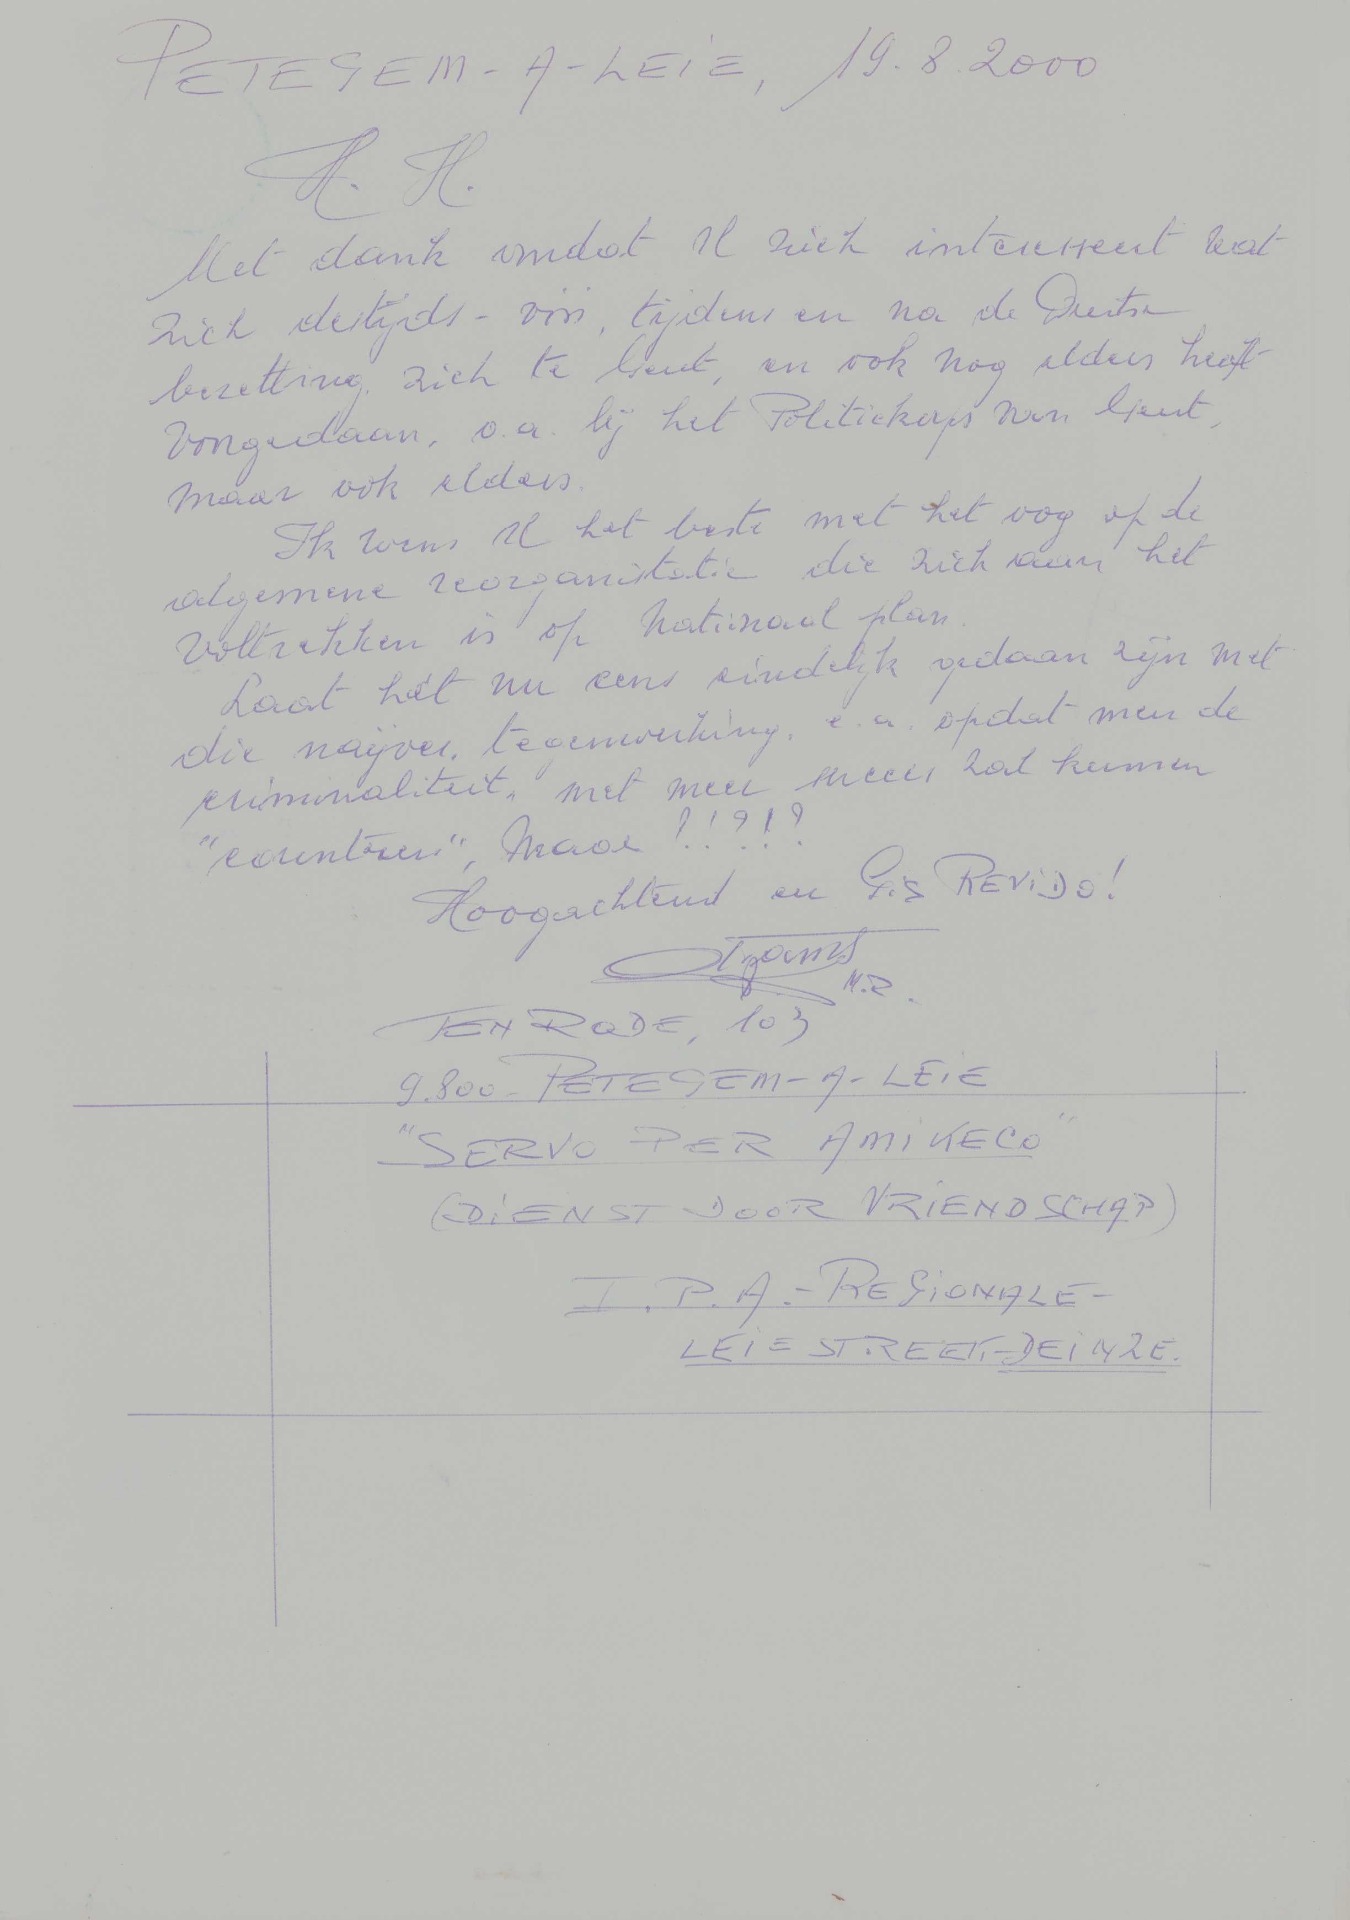 PETEGEM-A-LEIE, 19.8.2000
H. H.
Met dank omdat U zich interesseert wat
zich destijds - vóór, tijdens en na de Duitse
bezetting, zich te Gent, en ook nog elders heeft
voorgedaan, o.a. bij het Politiekorps van Gent,
maar ook elders.
Ik wens U het beste met het oog op de
algemene reorganisatie die zich aan het
voltrekken is op Nationaal plan.
Laat hét nu eens eindelijk gedaan zijn met
die naijver, tegenwerking, e.a. opdat men de
criminaliteit, met meer succes zal kunnen
"counteren", Maar ?!?!?
Hoogachtend en Gis REViDO!
M.R.
TEN RODE, 103
9.800-PETEGEM-A-LEiE
"SERVO PER AMiKECO"
(DiENST DOOR VRiENDSCHAP)
I.P.A.-REGiONALE-
LEiESTREEK-DEiNZE.